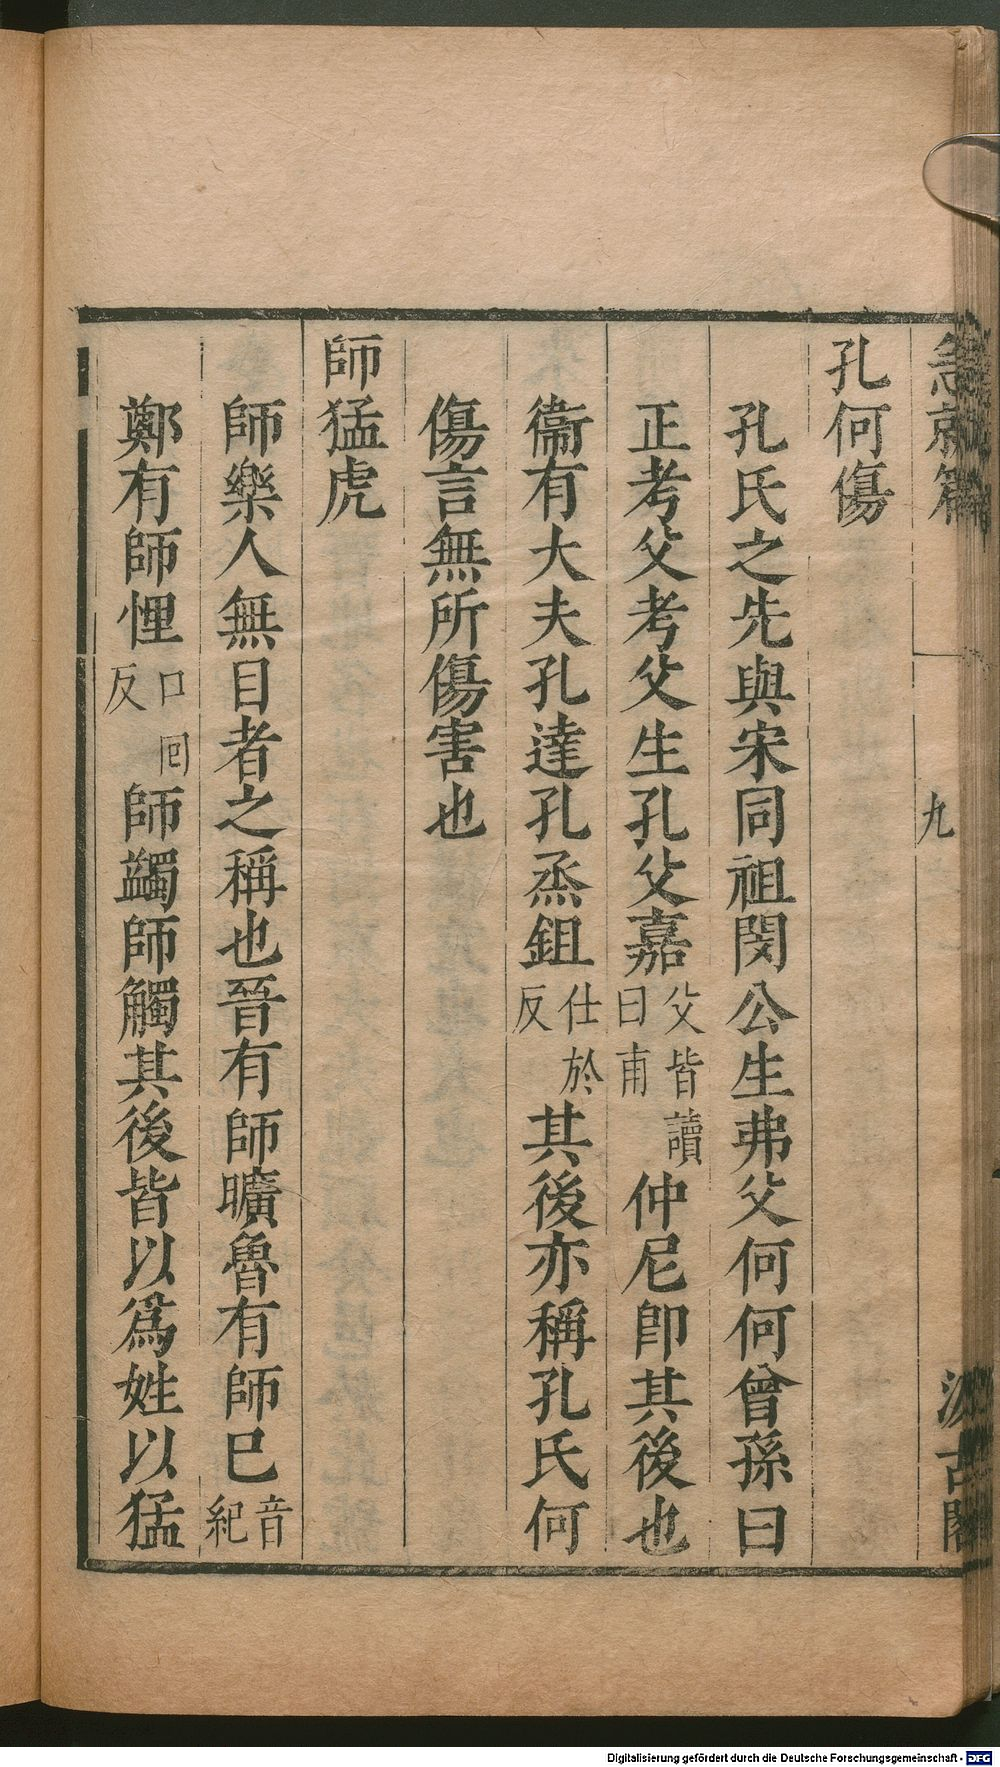 急就篇 九 汲古閣
孔何傷
孔氏之先與宋同祖閔公生弗父何何曾孫曰
正考父考父生孔父嘉父皆讀曰甫仲尼卽其後也
衞有大夫孔達孔烝鉏仕於反其後亦稱孔氏何
傷言無所傷害也
師猛虎
師樂人無目者之稱也晉有師曠魯有師已音紀
鄭有師悝口回反師蠲師觸其後皆以爲姓以猛
Digitalisierung gefördert durch die Deutsche Forschungsgemeinschaft - DFG